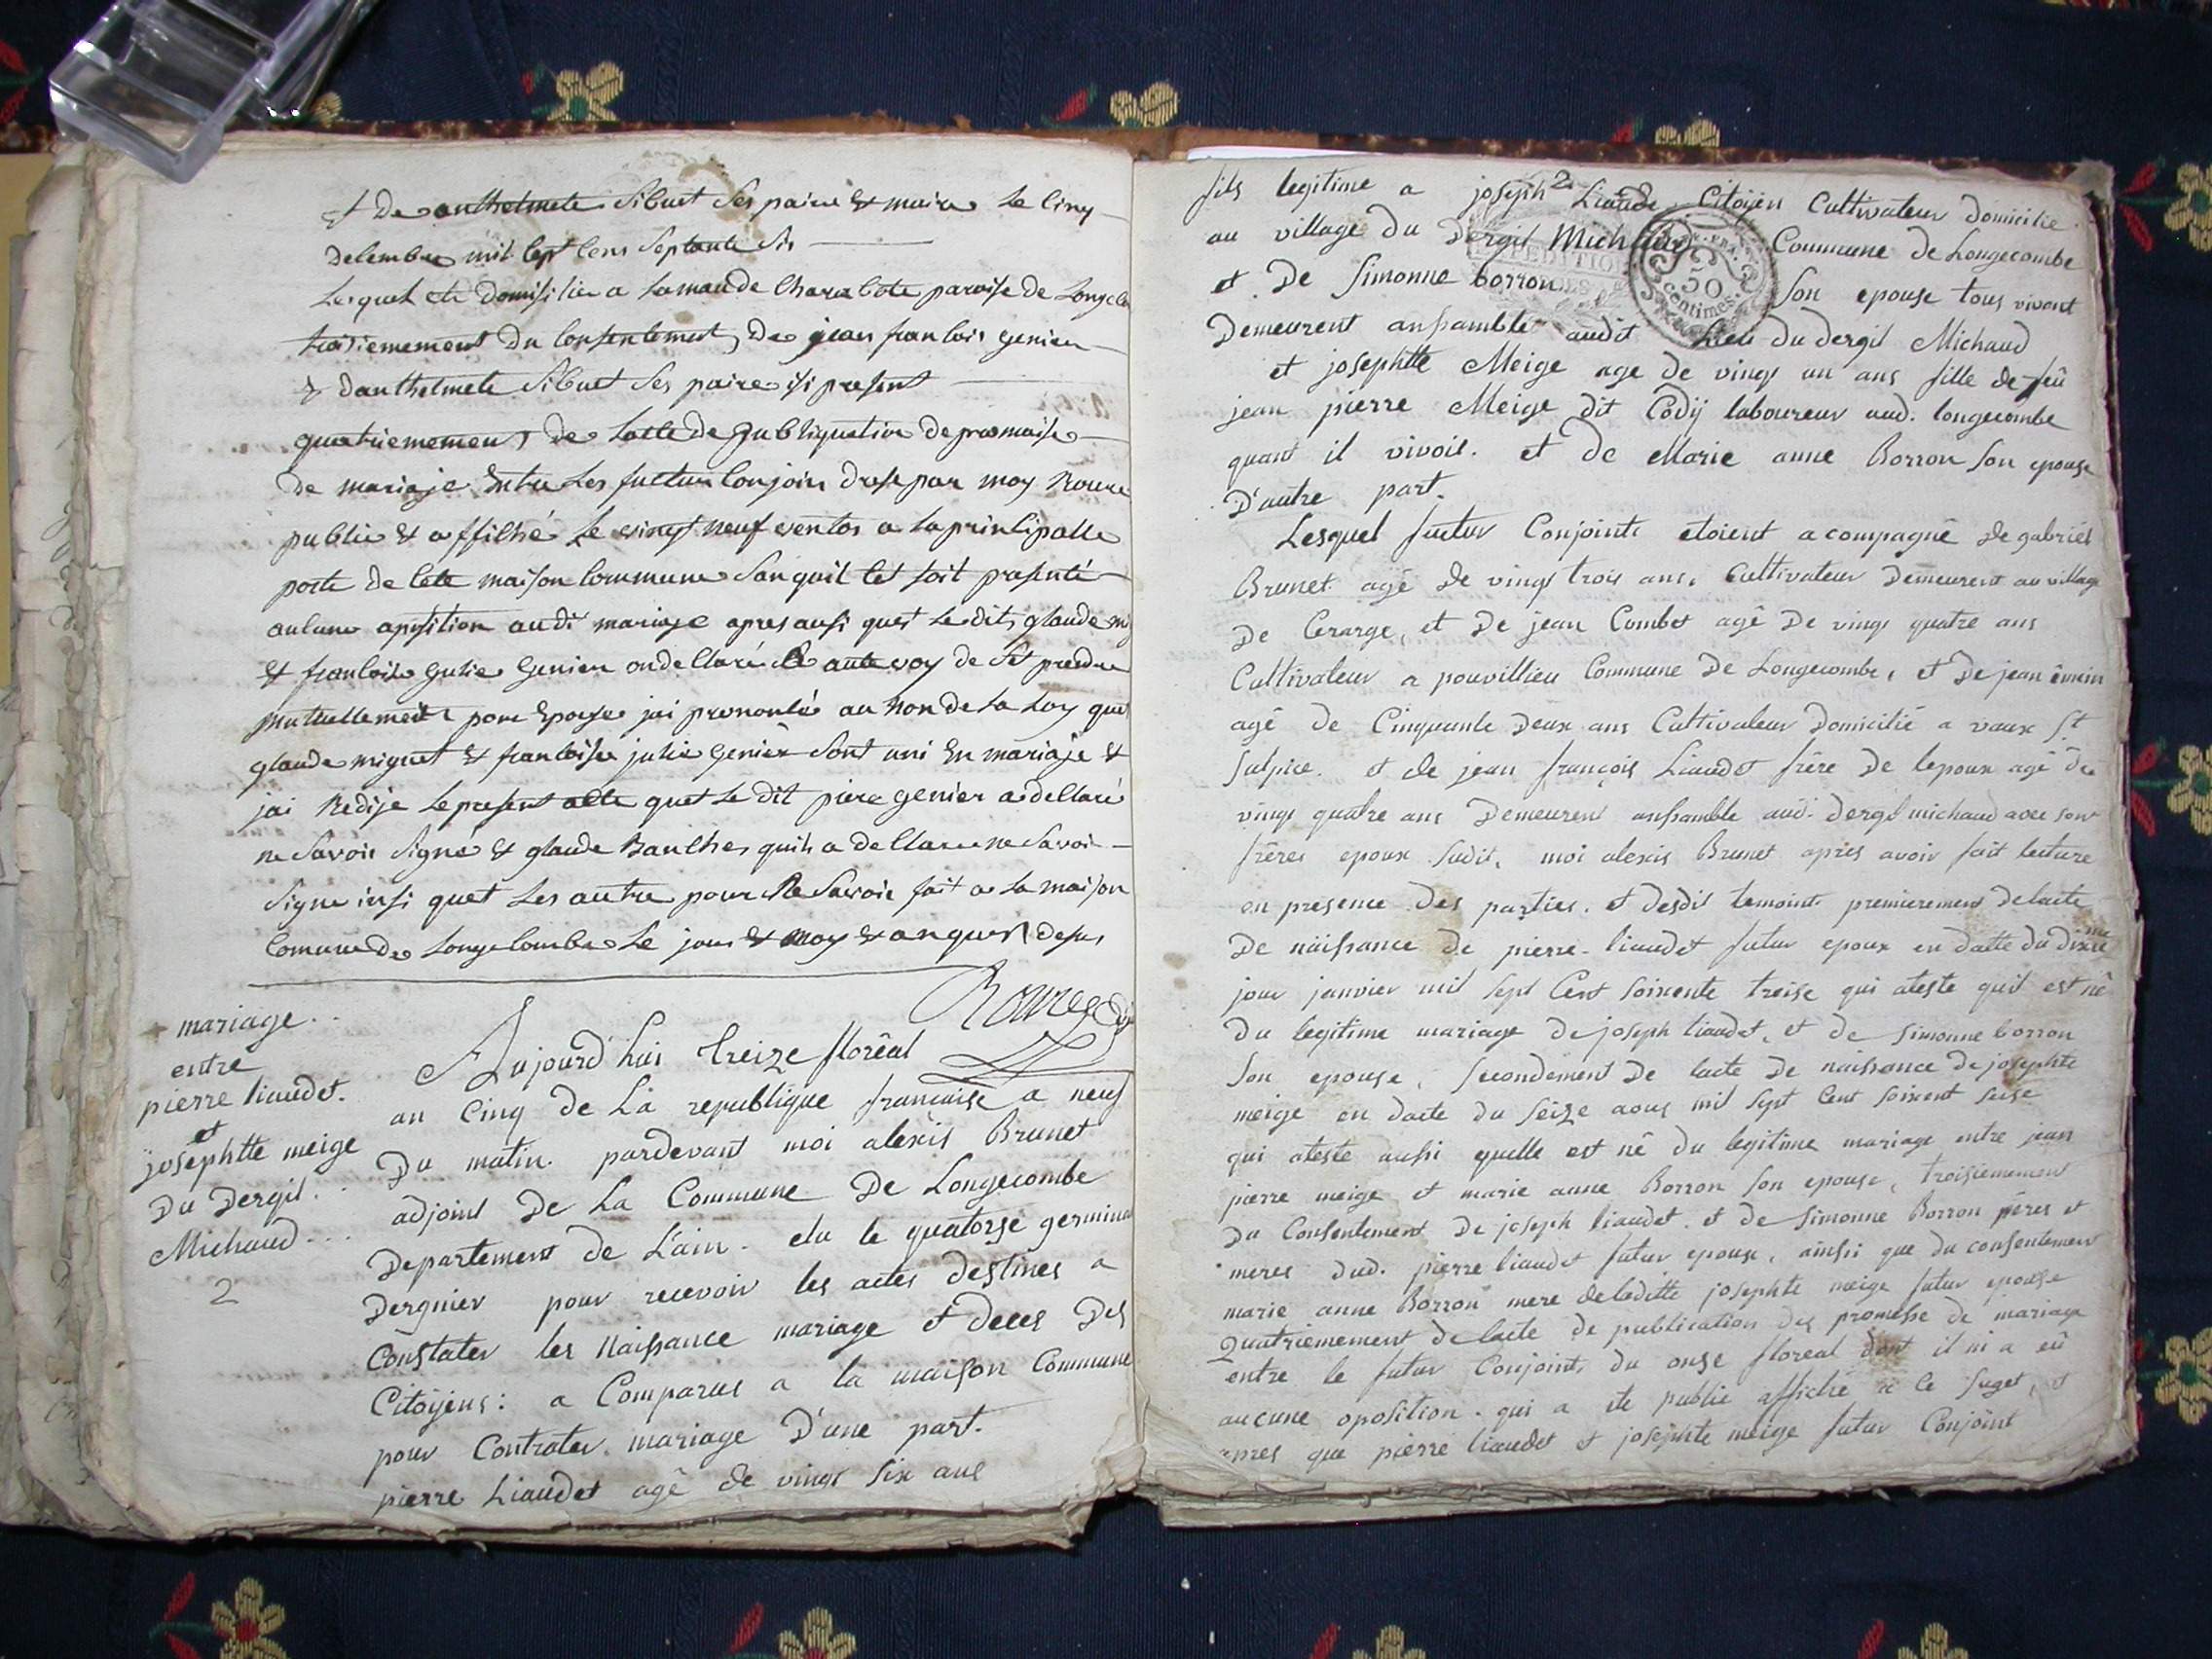 et de anthelmete Sibuet Ses paire & maire Le cinq
decembre mil sept cens Septante Sis
Lesquel ete domisilier a Lamande Charabote paroise de Longeco
troisiemement du consentement de jean francois genier
& danthelmete Sibuet Ses paire isi present
quatriemement de Lacte de publiquation de promaise
de mariaje Entre Les futtur Conjoin drese par moy Roure
publie & affiché Le vingt neuf ventos a La principalle
porte de cete maison Commune San quil let soit presenté
aucune aposition audi mariaje apres ausi quet Ledit glaude mi
& francoise Julie genier on declaré a aute voy de Set prendre
mutuellement pour Epouse jai prononcé au Non de La Loy que
glaude miguet & francoise julie genier Sont uni En mariaje &
jai Redije Le present acte quet Le dit piere genier a declaré
ne Savoir Signé & glaude Bauches quils a declare ne Savoir
Signe insi quet Les autre pour Ne Savoir fait a La maison
Comune de Longecombe Le jour & moy & an quest desus
Roure adj
mariage..
entre
pierre liaudet.
et
josephtte meige
Du Dergil..
Michaud...
2
Aujourd'hui treize florêal
an Cinq de La republique francaise a neuf
Du matin. pardevant moi alexis Brunet
adjoint De La Commune De Longecombe
Departement de L'ain. elu le quatorse germinal
Dergnier pour recevoir les actes destines a
Constater les Naissance mariage et deces Des
Citoÿens: a Comparus a la maison Commune
pour Contrater mariage D'une part.
pierre Liaudet agê de vingt Six ans
2
fils legitime a joseph Liaude Citoÿen Cultivateur Domicilie
au village du Dergil Michaud Commune de Longecombe
et De Simonne borron Son epouse tous vivant
Demeurent anssamble audit Lieu du Dergil Michaud
50
centimes
et josephtte Meige age De vingt un ans fille de feû
jean pierre Meige dit Codÿ laboureur aud. longecombe
quant il vivoit. et De Marie anne Borron Son epouse
D'autre part.
Lesquel futur Conjoints etoient acompagné de gabriel
Brunet agé de vingt trois ans, Cultivateur Demeurent au village
De Cerarge, et De jean Combet agé De vingt quatre ans
Cultivateur a pouvillieu Commune De Longecombe, et De jean
agé de Cinquante Deux ans Cultivateur Domicilié a vaux St
Sulpice. et de jean françois Liaudet frère De lepoux agé De
vingt quatre ans Demeurent anssamble aud. Dergil michaud avec son
frères epoux Sudit, moi alexis Brunet après avoir fait lecture
en presence Des parties, et desdit temoint premierement De lacte
De näissance de pierre liaudet futur epoux en datte du dixieme
jour janvier mil sept Cent Soixente treise qui ateste quil est nê
Du legitime mariage de joseph liaudet, et de Simonne borron
Son epouse, Secondement De lacte De naissance De josephte
meige en date du Seize aous mil Sept Cent Soixent Seise
qui ateste aussi quelle est né du legitime mariage entre jean
pierre meige et marie anne Borron Son epouse, troisiemement
Du Consentement De joseph liaudet. et de Simonne Borron pères et
meres dud. pierre liaudet futur epoux, ainssi que du consentement
marie anne Borron mere deladitte josephte meige futur epouse
Quatriemement de lacte de publication des promesse de mariage
entre le futur Conjoint, du onse floreal dont il ni a eû
aucune oposition. qui a ete publie affiché a ce Suget, et
apres que pierre liaudet et josephte meige futur Conjoint